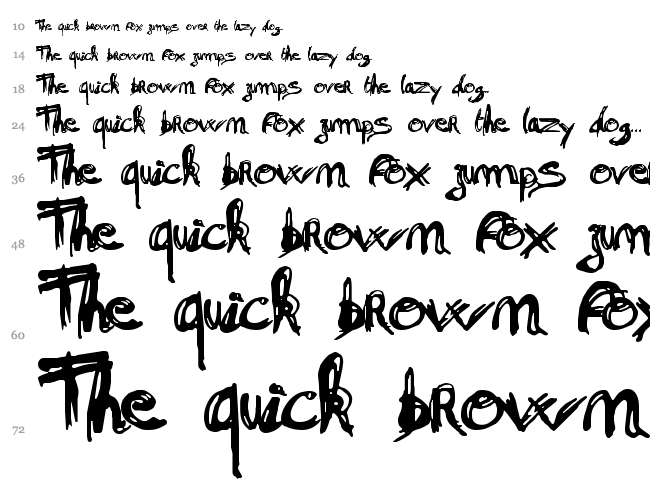 10 The quick brown fox jumps over the lazy dog
14 The quick brown fox jumps over the lazy dog.
18 The quick brown fox jumps over the lazy dog..
24 The quick brown fox jumps over the lazy dog...
36 The quick brown fox jumps ove
48 The quick brown fox jum
60 The quick brown fox
72 The quick brown